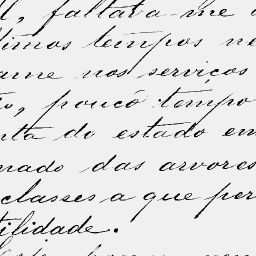 l, faltava-me
timos tempos ne
ame nos serviços
to, pouco tempo
nta do estado em
nado das arvores
classes a que per
tilidade.